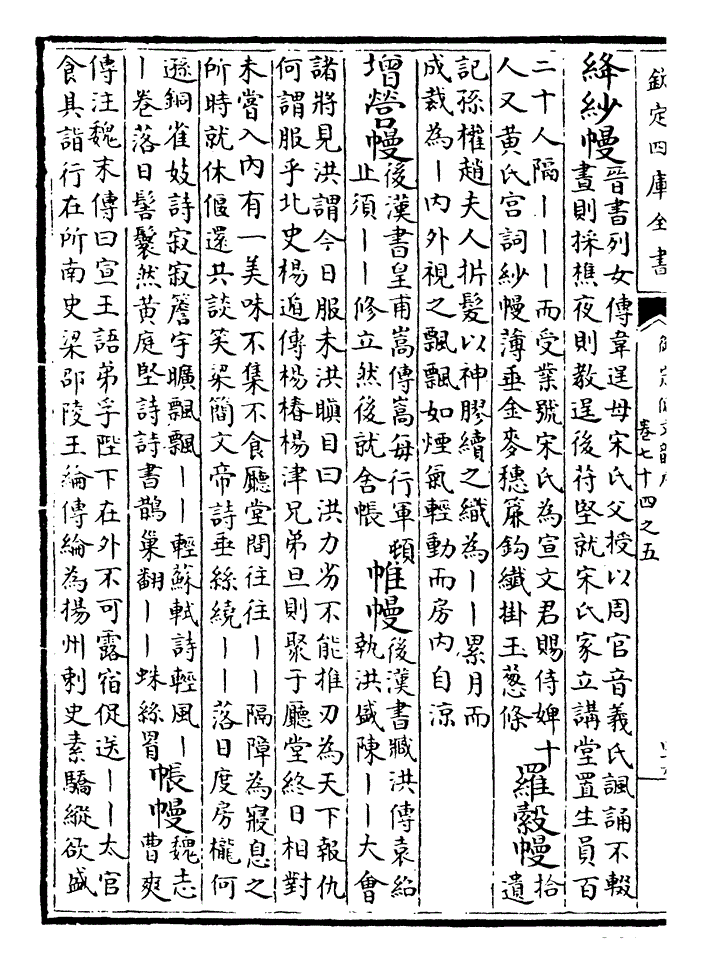 欽定四庫全書
卷七十四之五
絳紗幔
晉書列女傳韋逞母宋氏父授以周官音義氏諷誦不輟
晝則採樵夜則教逞後苻堅就宋氏家立講堂置生員百
二十人隔丨丨丨而受業號宋氏為宣文君賜侍婢十
人又黃氏宮詞紗幔薄垂金麥穗簾鉤纖掛玉蔥條
羅縠幔
拾
遺
記孫權趙夫人㭊髮以神膠續之織為丨丨累月而
成裁為丨內外視之飄飄如煙氣輕動而房內自涼
增營幔
後漢書皇甫嵩傳嵩每行軍頓
止須丨丨修立然後就舍帳
帷幔
後漢書臧洪傳袁紹
執洪盛陳丨丨大會
諸將見洪謂今日服未洪瞋目曰洪力劣不能推刃為天下報仇
何謂服乎北史楊遁傳楊椿楊津兄弟旦則聚于廳堂終日相對
未嘗入內有一美味不集不食廳堂間往往丨丨隔障為寢息之
所時就休偃還共談笑梁簡文帝詩垂絲繞丨丨落日度房櫳何
遜銅雀妓詩寂寂簷宇曠飄飄丨丨輕蘇軾詩輕風丨
丨卷落日髻鬟然黃庭堅詩詩書鵲巢翻丨丨蛛絲罥
帳幔
魏志
曹爽
傳注魏末傳曰宣王語弟孚陛下在外不可露宿促送丨丨太官
食具詣行在所南史梁邵陵王綸傳綸為揚州刺史素驕縱欲盛